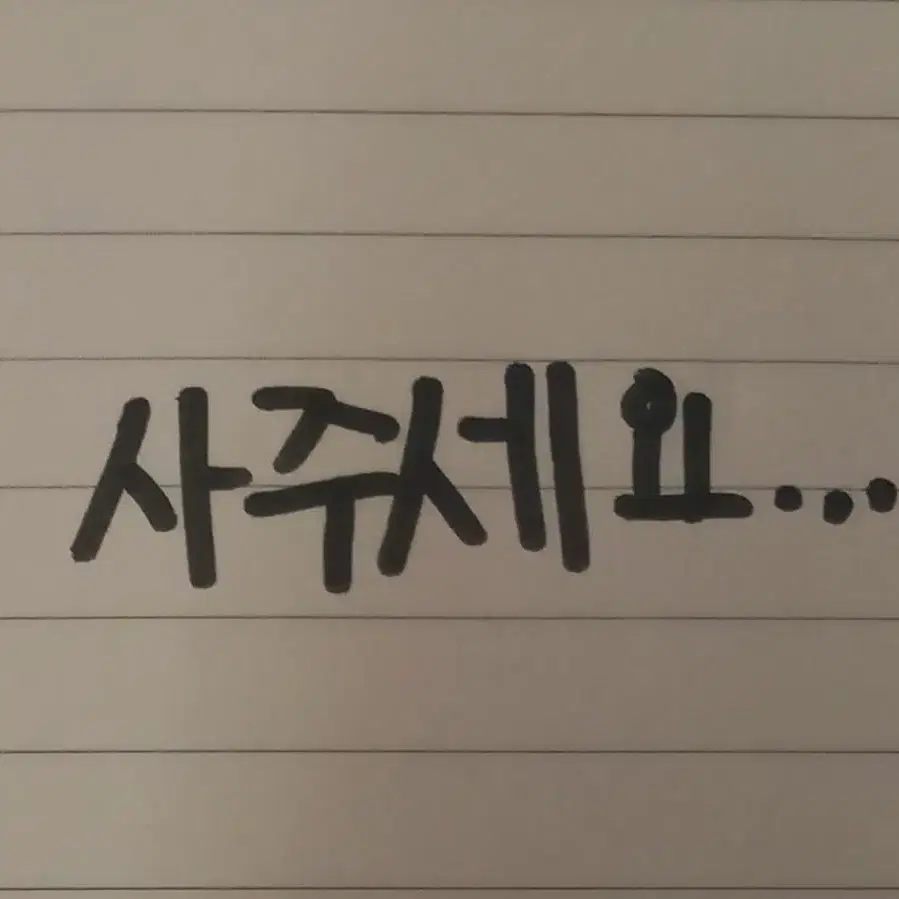 사주세요...